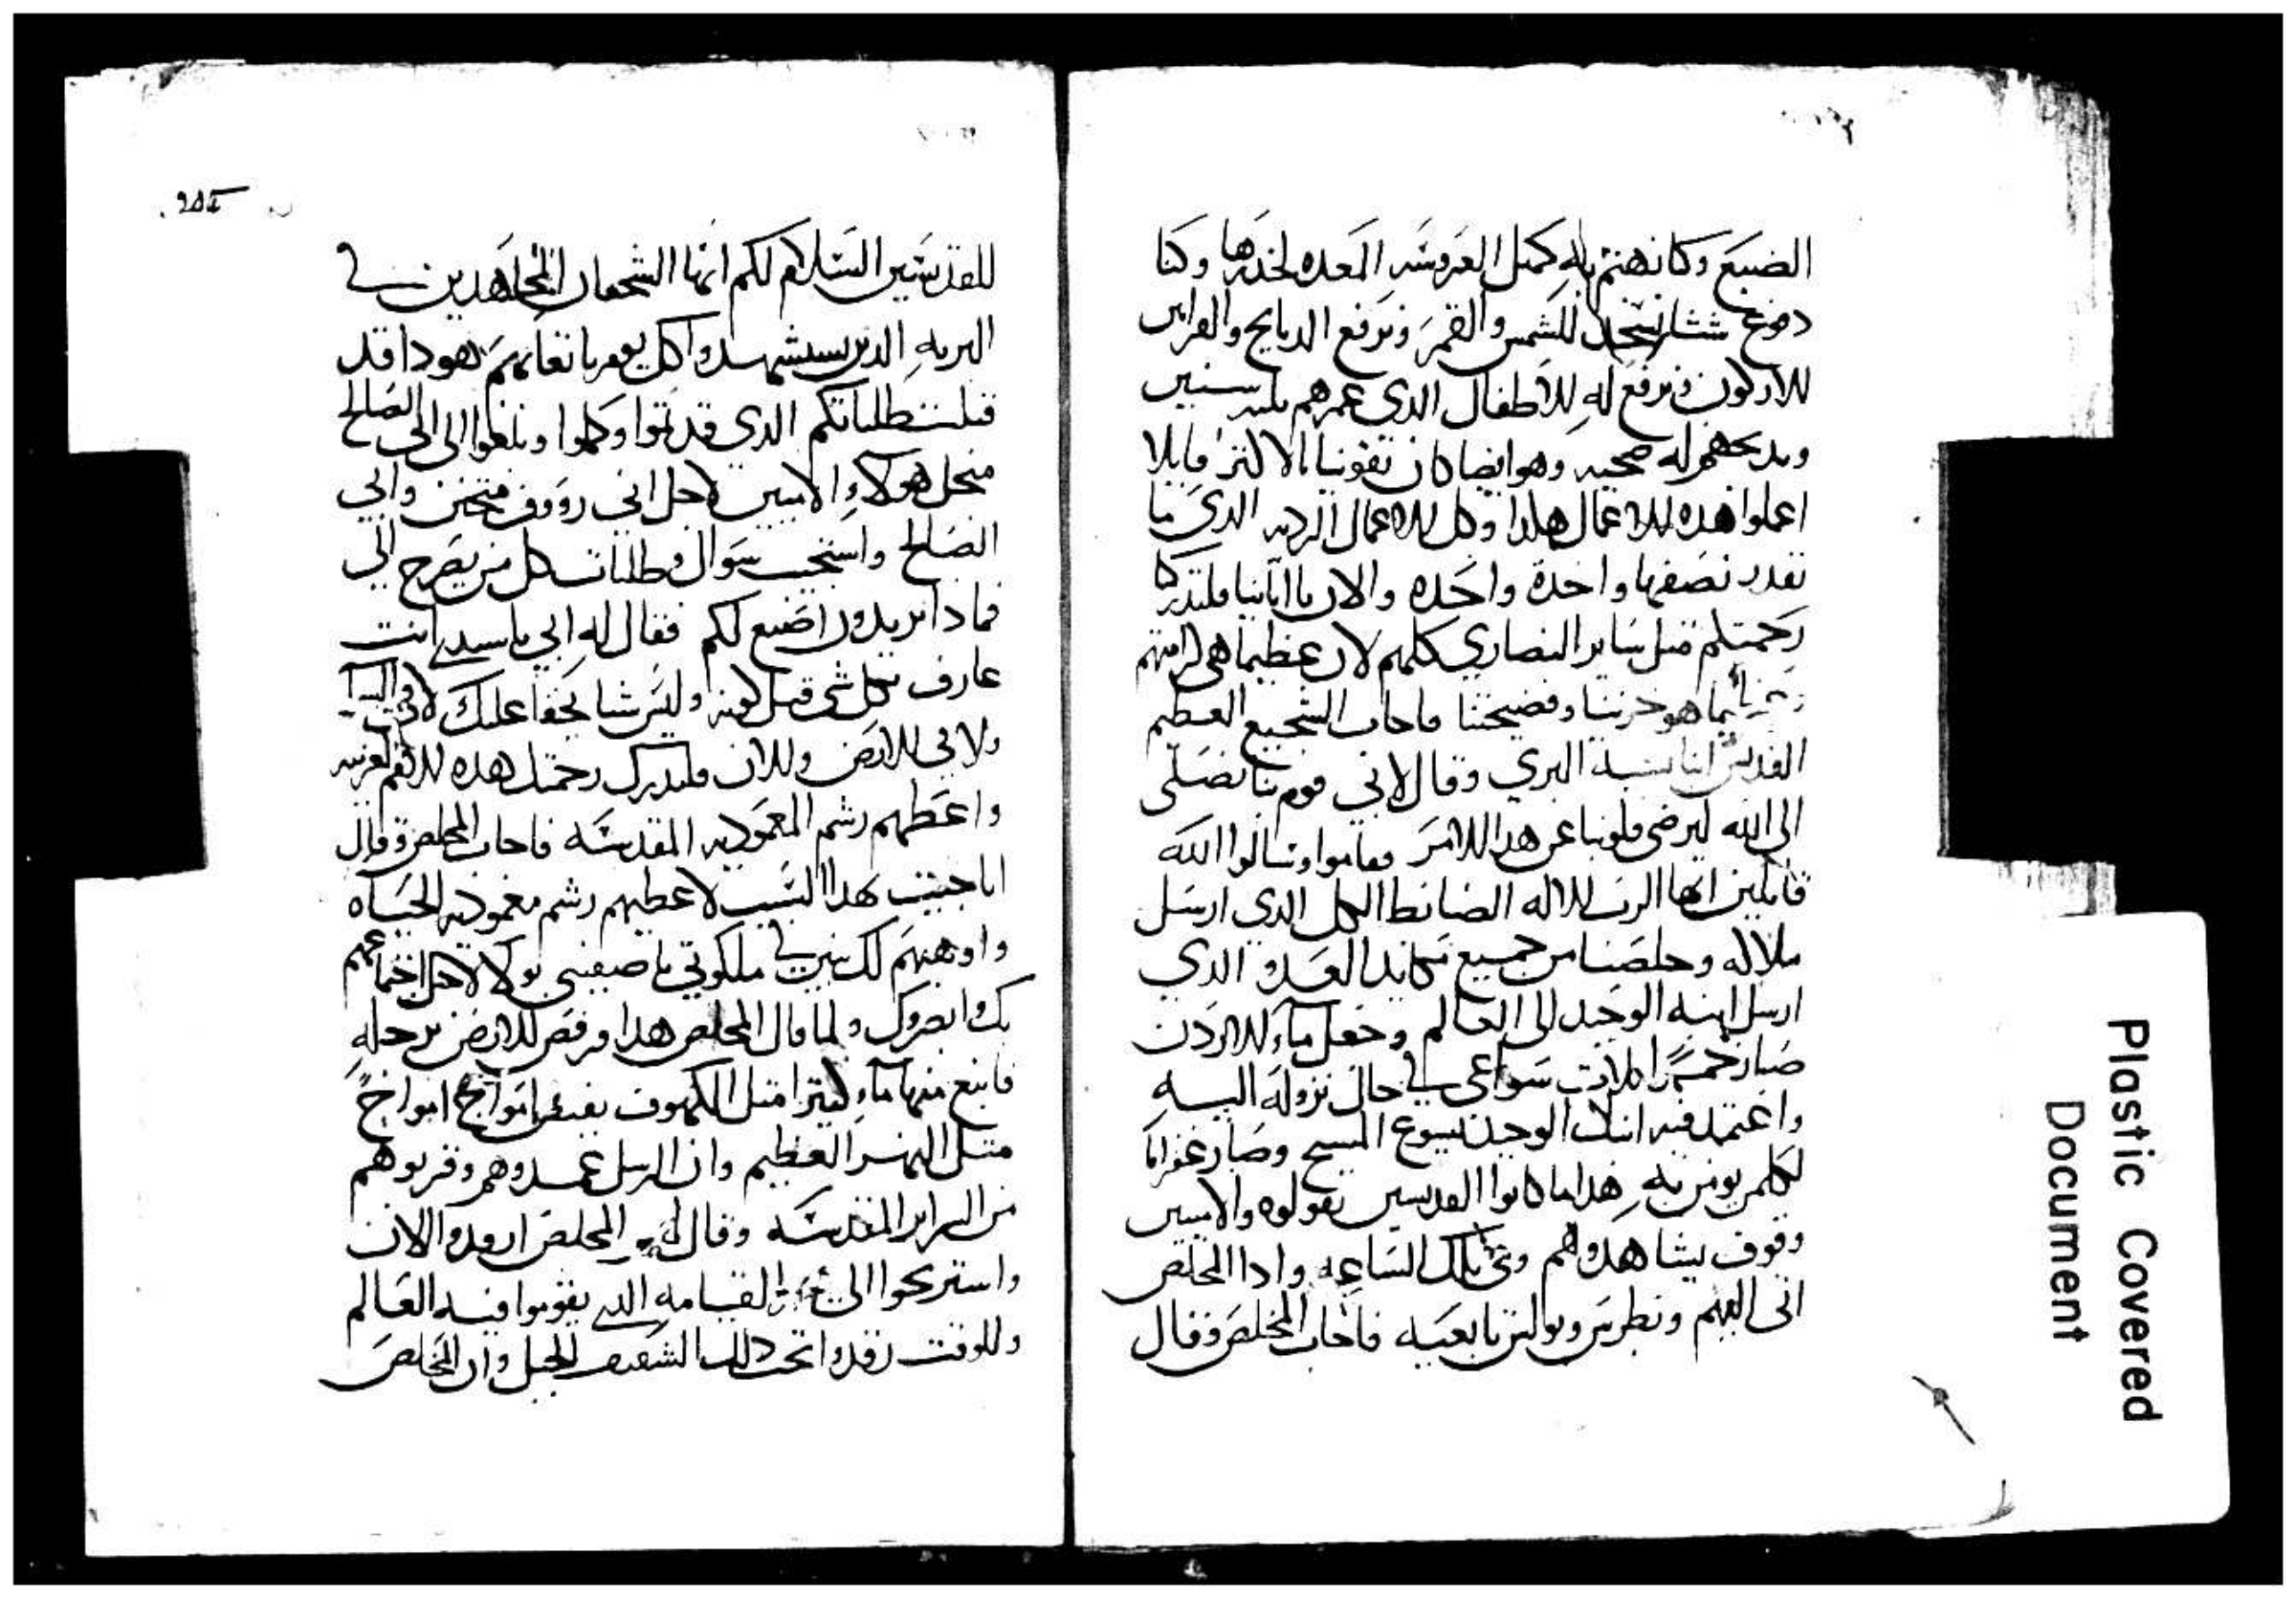 الضبع وكانهتم به كمثل العروسه المعده لخدرها وكنا
دفوع شتا نسجد للشمس والقمر ونرفع الدبايح والقرابين
للاركون ونرفع له الاطفال الذي عمرهم تلته سنين
وندبحهم له ضحيه وهو ايضا كان تقوينا بالاكتر قايلا
اعملوا هده الاعمال هكدا وكل الاعمال الرديه الدي ما
نقدر نصفها واحدة واحده والان يا ابانينا فلتدركنا
رحمتكم متل ساير النصاري كلهم لان عظيما هي كرامتهم
هو خزينا وفضيحتنا فاجاب الشجيع العظيم
القديس البري وقال لابي قوم بنا نصلي
الى الله ليرضي قلوبنا عن هدا الامر فقاموا وسالوا الله
قايلين ايها الرب الاله الضابط الكل الدي ارسل
ملاكه وخلصنا من جميع مكايد العدو الدي
ارسل ابنه الوحيد الى العالم وجعل ماء الاردن
صار خمرا تلات سواعي في حال نزوله اليه
واعتمد فيه ابنك الوحيد يسوع المسيح وصار غفرانا
لكلمن يومن به هدا ما كانوا القديسين يقولوه والاميين
وقوف يشاهدوهم وفي تلك الساعه وادا المخلص
اتى اليهم وبطرس وبولس تابعيه فاجاب المخلص وقال
للقديسين السلام لكم ايها الشجعان المجاهدين في
البريه الدين يستشهدوا كل يوم باتعابهم هودا قد
قبلت طلباتكم الدي قد تموا وكملوا وبلغوا الى ابي الصالح
من اجل هولاء الاميين لاجل اني رووف متحنن وابي
الصالح واستجيب سوال وطلبات كل من يصرخ الي
فمادا تريدون اصنع لكم فقال له ابي يا سيدي انت
عارف بكل شي قبل كونه وليس شيا يخفا عليك لا في السماء
ولا في الارض والان فلتدرك رحمتك هده الامم الغريبه
واعطهم رشم المعموديه المقدسه فاجاب المخلص وقال
انا جييت بهدا السبب لاعطيهم رشم معموديه الحياه
واوهبهم لك بنين في ملكوتي يا صفيي بولا لاجل اجتماعهم
بك وابصروك ولما قال المخلص هدا رفص الارض برجله
فانبع منها ماء كتيرا متل الكهوف بفيض امواج امواج
متل النهر العظيم وان الرسل عمدوهم وقربوهم
من السراير المقدسه وقال لهم المخلص ارقدوا الان
واستريحوا الى القيامه الدي يقوموا فيه العالم
وللوقت رقدوا تحت دلك الشقيف الجبل وان المخلص
Plastic Covered
Document